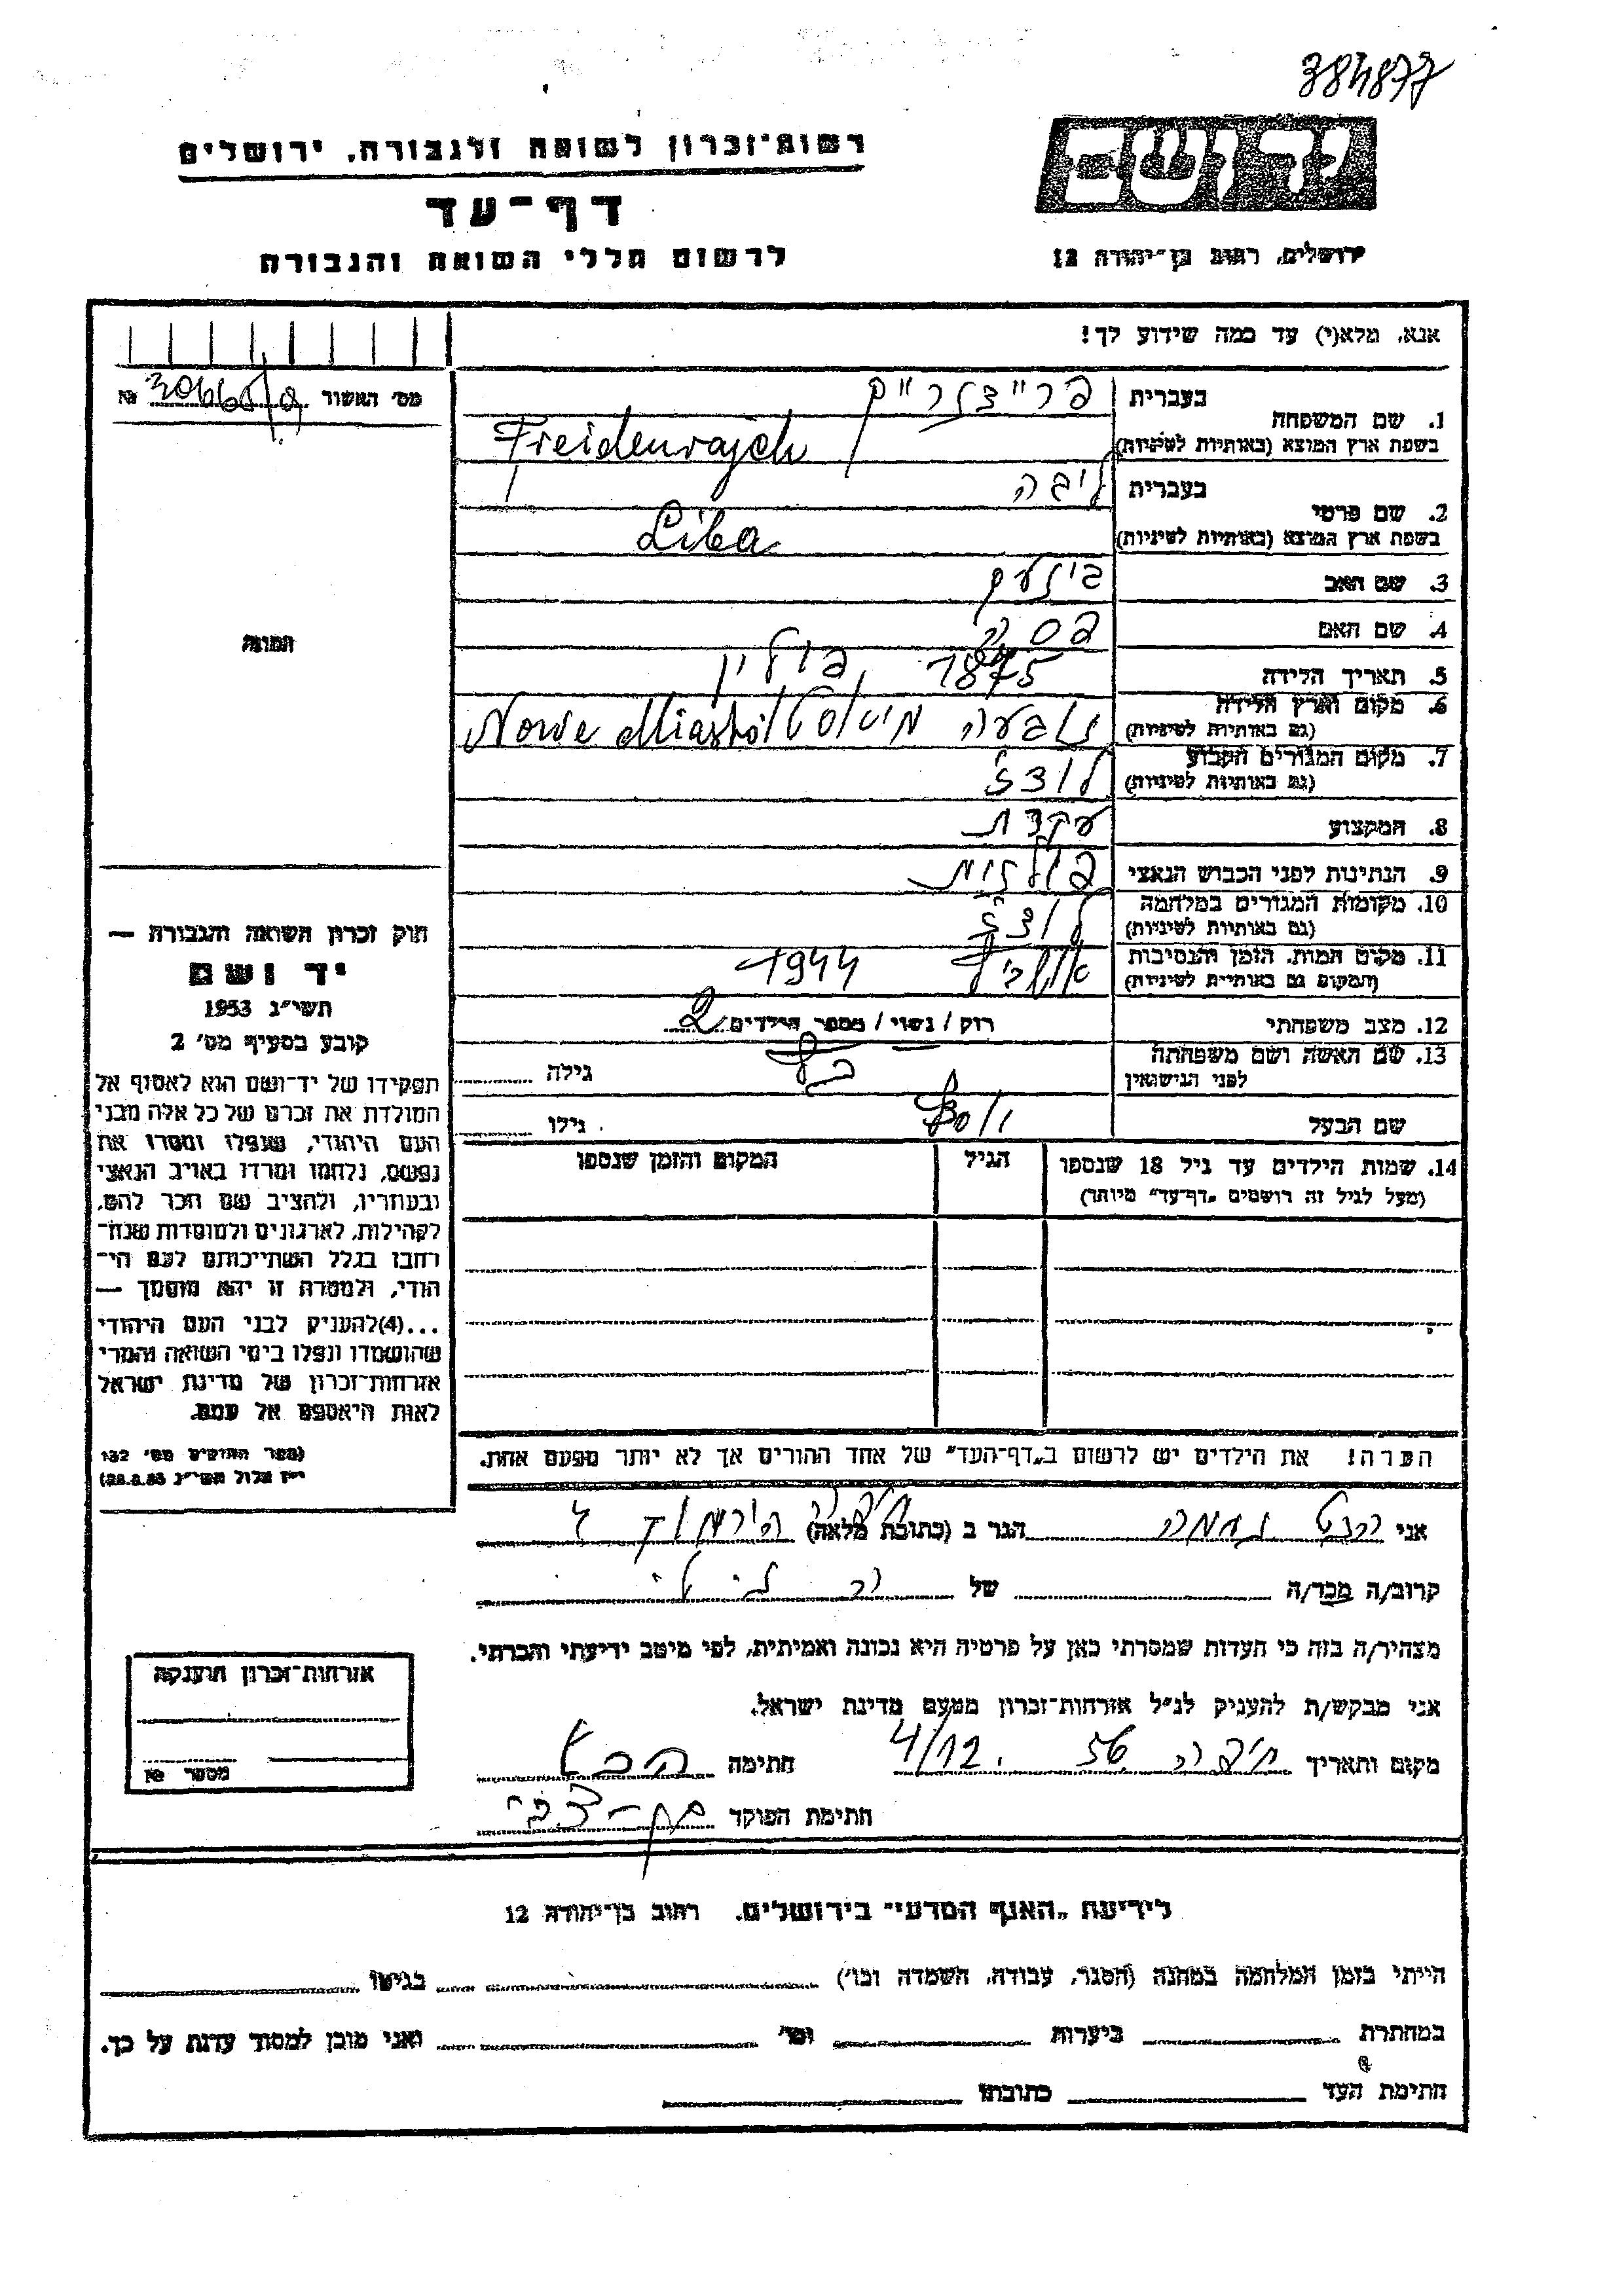 384877
רשות־זכרון לשואה ולגבורה, ירושלים
דף־עד
לרשום חללי השואה והגבורה
ירושלים, רחוב בן־יהודה 12
אנא, מלא(י) עד כמה שידוע לך!
מס' האשור №
1. שם המשפחה
בעברית
בשפת ארץ המוצא (באותיות לטיניות) Freidenrajch
2. שם פרטי
בעברית ליבה
בשפת ארץ המוצא (באותיות לטיניות) Liba
3. שם האב
4. שם האם
5. תאריך הלידה 1875 פולין
6. מקום וארץ הלידה
(גם באותיות לטיניות) Nowe Miasto
7. מקום המגורים הקבוע
(גם באותיות לטיניות) לודז'
8. המקצוע עקרת
9. הנתינות לפני הכבוש הנאצי פולנית
10. מקומות המגורים במלחמה
(גם באותיות לטיניות) לודז'
11. מקום המות, הזמן והנסיבות 1944
(המקום גם באותיות לטיניות)
12. מצב משפחתי רוק / נשוי / מספר הילדים 2
13. שם האשה ושם משפחתה
לפני הנישואין
גילה
שם הבעל
גילו
14. שמות הילדים עד גיל 18 שנספו
(מעל לגיל זה רושמים „דף־עד" מיוחד)
הגיל
המקום והזמן שנספו
הערה! את הילדים יש לרשום ב„דף־העד" של אחד ההורים אך לא יותר מפעם אחת.
התמונה
חוק זכרון השואה והגבורה —
יד ושם
תשי"ג 1953
קובע בסעיף מס' 2
תפקידו של יד־ושם הוא לאסוף אל
המולדת את זכרם של כל אלה מבני
העם היהודי, שנפלו ומסרו את
נפשם, נלחמו ומרדו באויב הנאצי
ובעוזריו, ולהציב שם וזכר להם,
לקהילות, לארגונים ולמוסדות שנח־
רבו בגלל השתייכותם לעם הי־
הודי, ולמטרה זו יהא מוסמך —
...(4)להעניק לבני העם היהודי
שהושמדו ונפלו בימי השואה והמרי
אזרחות־זכרון של מדינת ישראל
לאות היאספם אל עמם.
(ספר החוקים מס' 132
י"ז אלול תשי"ג 28.8.53)
אני נחמה הגר ב (כתובת מלאה) חיפה
קרוב/ה מכר/ה של
מצהיר/ה בזה כי העדות שמסרתי כאן על פרטיה היא נכונה ואמיתית, לפי מיטב ידיעתי והכרתי.
אני מבקש/ת להעניק לנ"ל אזרחות־זכרון מטעם מדינת ישראל.
מקום ותאריך חיפה 4/12. 56 חתימה
חתימת הפוקד בן־צבי
אזרחות־זכרון הוענקה
מספר №
לידיעת „האגף המדעי" בירושלים, רחוב בן־יהודה 12
הייתי בזמן המלחמה במחנה (הסגר, עבודה, השמדה וכו') בגיטו
במחתרת ביערות וכו' ואני מוכן למסור עדות על כך.
חתימת העד כתובתו